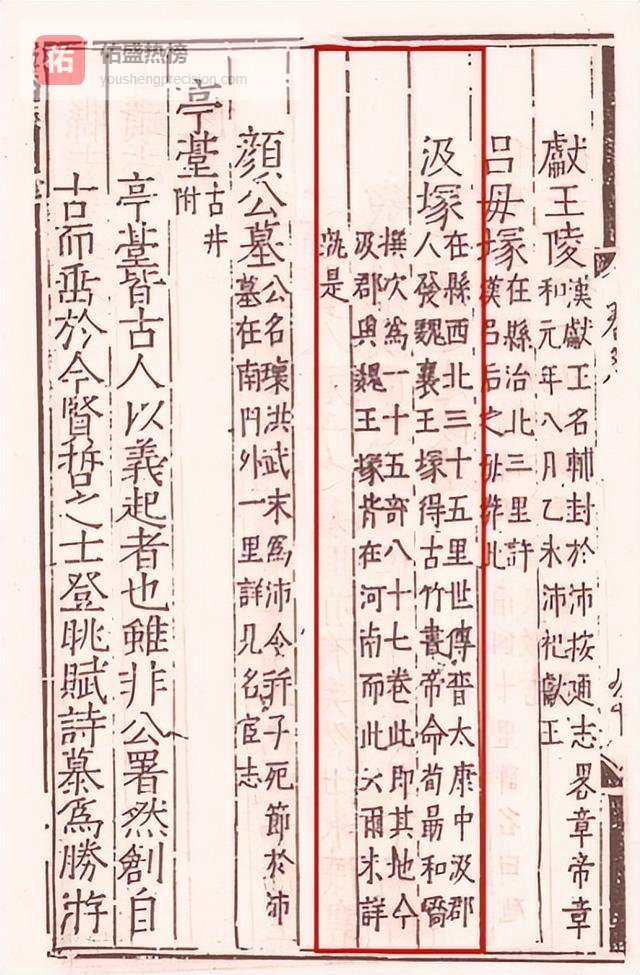 佑
佑盛热榜
youshengprecision.com
獻王陵
漢獻王名輔封於沛按通志畧章帝章
和元年八月乙未沛祀獻王
吕母塚
在縣治北三里許
漢吕后之母葬此
汲塚
在縣西北三十五里世傳晉太康中汲郡
人發魏襄王塚得古竹書帝命荀勗和嶠
撰次爲一十五部八十七卷此即其地今
汲郡與魏王塚皆在河南而此云爾未詳
孰是
顔公墓
公名瓌洪武末爲沛令并子死節於沛
墓在南門外一里詳見名宦志
亭臺
古井
附
亭臺皆古人以義起者也雖非公署然創自
古而垂於今賢哲之士登眺賦詩慕爲勝游